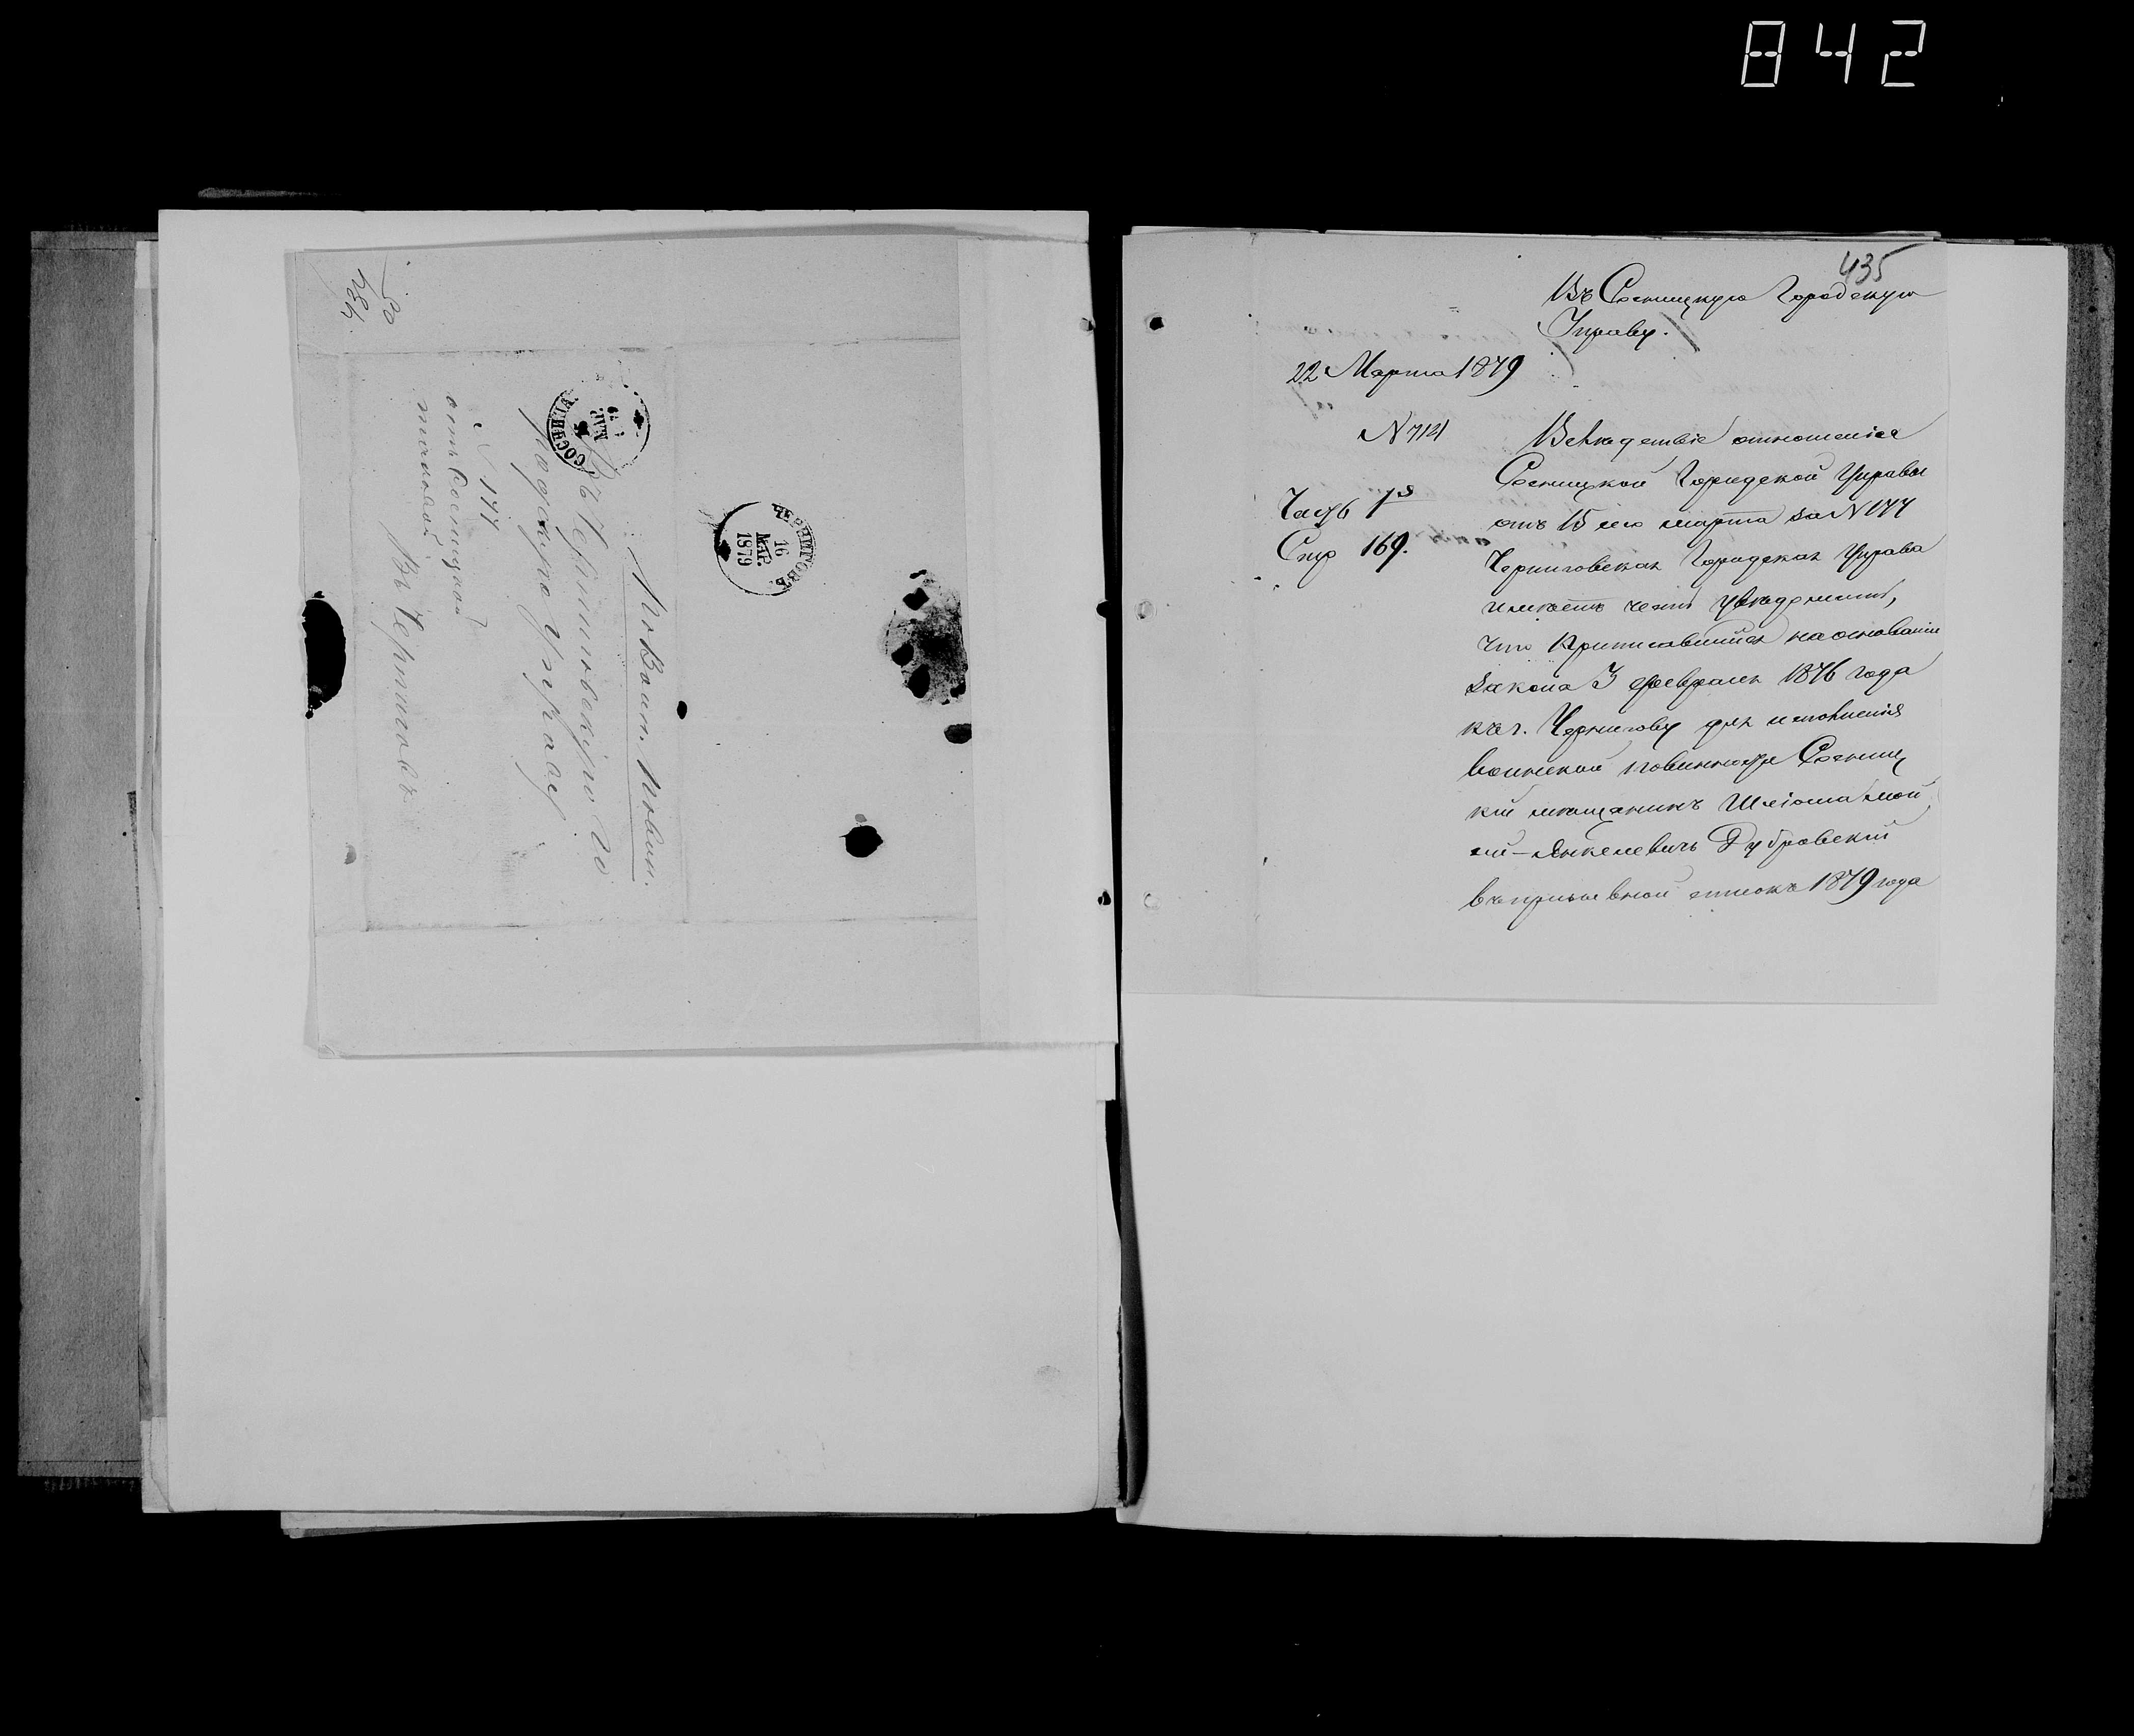 842
По Воин. повин.
Въ Черниговскую Го
родскую Управу
№ 177
отъ Сосницкой
Въ Черниговъ.
СОСНИЦА
МАР.
ЧЕРНИГОВЪ
16
МАР.
1879
435
Въ Сосницкую Городскую
Управу.
22 Марта 1879
№ 7121
Часть 1я
Стр 169.
Вслѣдствіе отношенія
Сосницкой Городской Управы
отъ 15 сего марта за № 177
Черниговская Городская Управа
имѣетъ честь увѣдомить,
что приписавшійся на основаніи
закона 3 февраля 1876 года
къ г. Чернигову для исполненія
воинской повинности Сосниц
кій мѣщанинъ Шліома Мой
сій-Янкелевичъ Дубровскій
въ призывной списокъ 1879 года